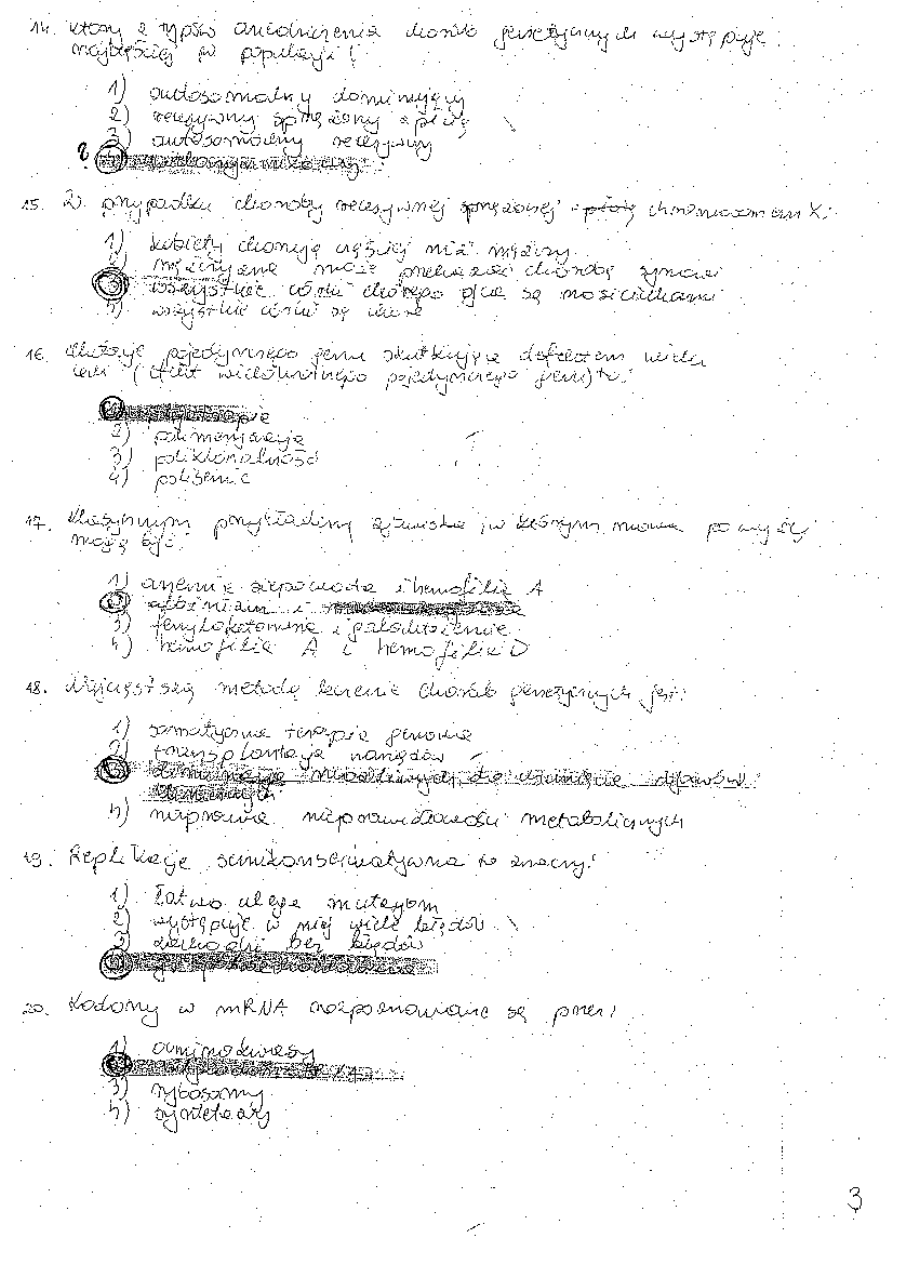 14. Który z typów dziedziczenia chorób genetycznych występuje
najczęściej w populacji?
1) autosomalny dominujący
2) recesywny sprzężony z płcią
3) autosomalny recesywny
?
15. W przypadku choroby recesywnej sprzężonej z płcią chromosomem X:
1) kobiety chorują częściej niż mężczyźni
2) mężczyzna może przekazać chorobę synowi
3) wszystkie córki chorego ojca są nosicielkami
4) wszystkie córki są chore
16. Mutacje pojedynczego genu skutkujące defektem wielu
cech (efekt wielokrotnego pojedynczego genu) to:
1) plejotropia
2)
3) poliklonalność
4) poligenie
17. Klasycznym przykładem zjawiska, w którym
mogą być:
1) anemia sierpowata i hemofilia A
2) albinizm i
3) fenyloketonuria i galaktozemia
4) hemofilia A i hemofilia D
18. Najczęstszą metodą leczenia chorób genetycznych jest:
1) somatyczna terapia genowa
2) transplantacja narządów
3) eliminacja
4) naprawa nieprawidłowości metabolicznych
19. Replikacja semikonserwatywna to znaczy:
1) łatwo ulega mutacjom
2) występuje w niej wiele błędów
3) zachodzi bez błędów
4)
20. Kodony w mRNA rozpoznawane są przez:
1) aminokwasy
2)
3) rybosomy
4) syntetazy
3